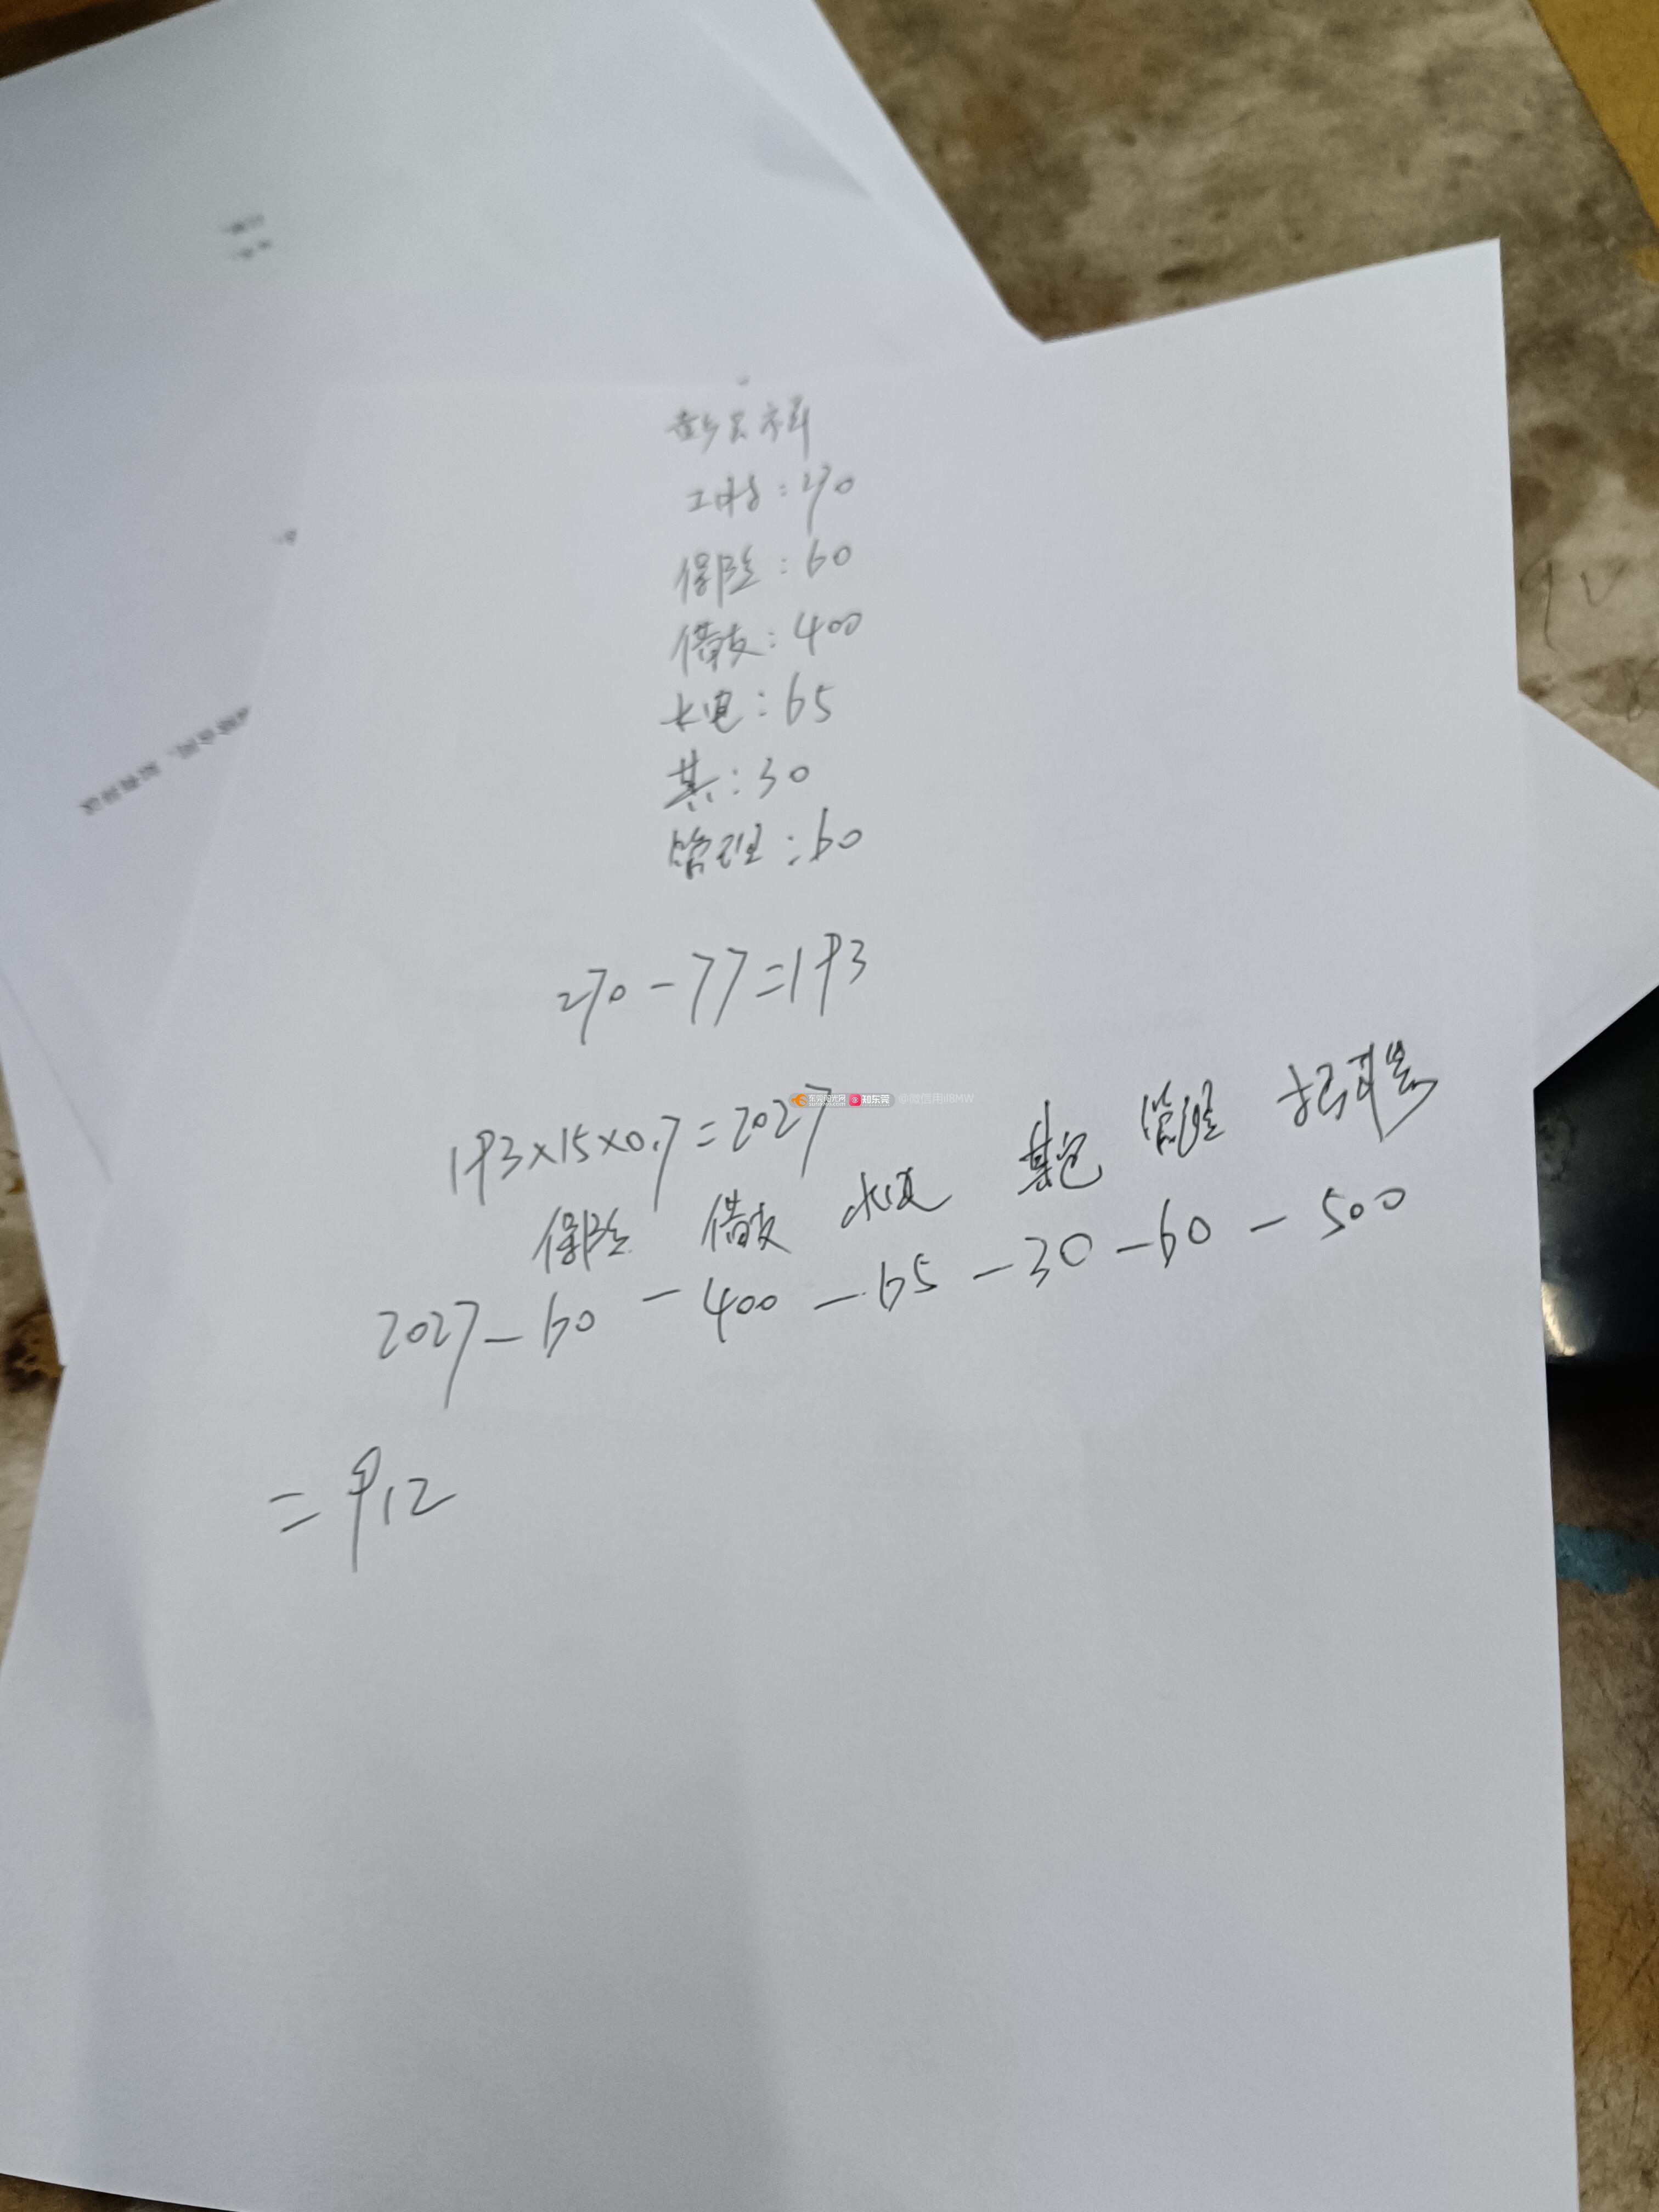 工时:270
保险:60
借支:400
水电:65
其:30
管理:60
270-77=193
193×15×0.7=2027
东莞阳光网 知东莞 @微信用户BMW
保险 借支 水电 其它 管理
2027-60-400-65-30-60-500
=912